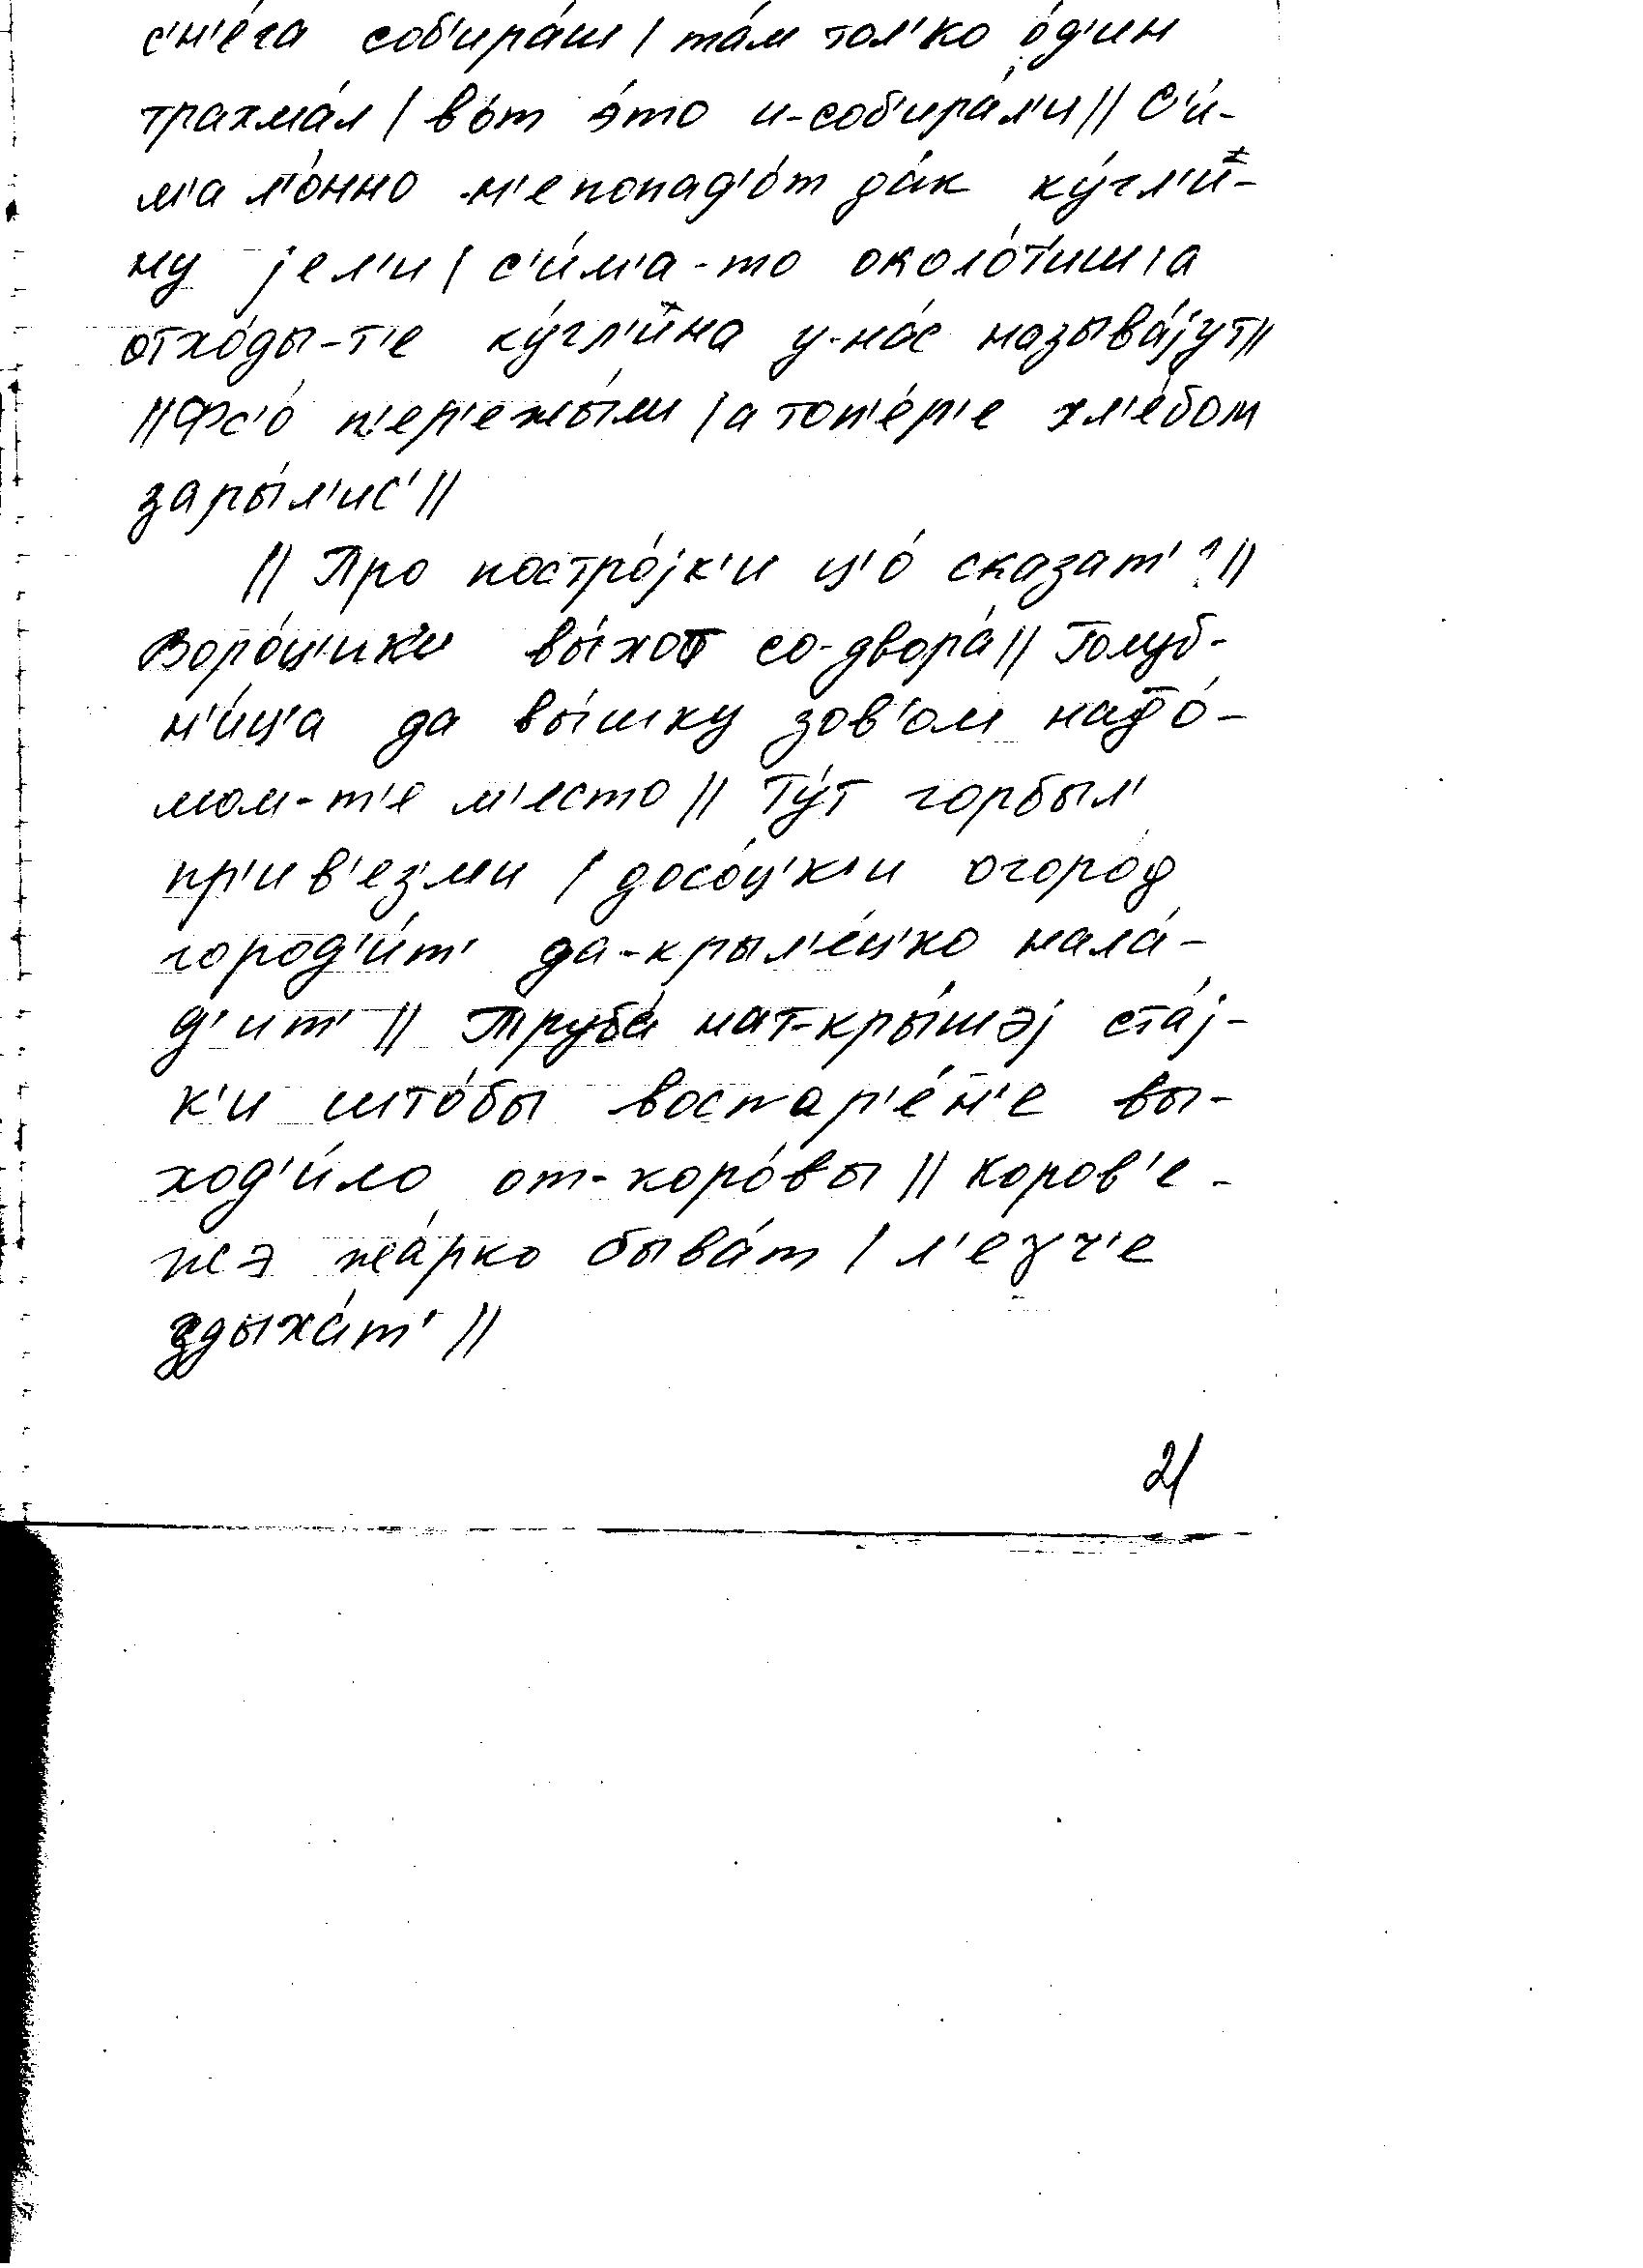 с'н'е́га соб'ира́ш / та́м тол'ко о́д'ин
трахма́л / во́т э́то и-соб'ира́л'и // С'и́-
м'а л'о́нно н'епопад'о́т да́к ку́гл'и-
ну јел'и / с'и́м'а-то около́тиш а
отхо́ды-т'е ку́гл'ина у-на́с называ́јут //
// Фс'о́ п'ер'ежы́ли / а топ'е́р'е хл'е́бом
зары́л'ис' //
// Про постро́јк'и ц'о́ сказат'? //
Воро́ц'ик'и вы́хот со-двора́ // Голуб-
н'и́ц'а да вы́шку зов'ом надо́-
мом-т'е м'есто // Ту́т горбыл'
пр'ив'ез'ми / досо́ц'к'и огоро́д
город'и́т' да-крыл'е́ц'ко нала́-
д'ит' // Труба́ нат-кры́шэј ста́ј-
к'и што́бы воспар'е́н'е вы-
ход'и́ло от-коро́вы // Коров'е-
жэ жа́рко быва́т / л'егч'е
здыха́т' //
21